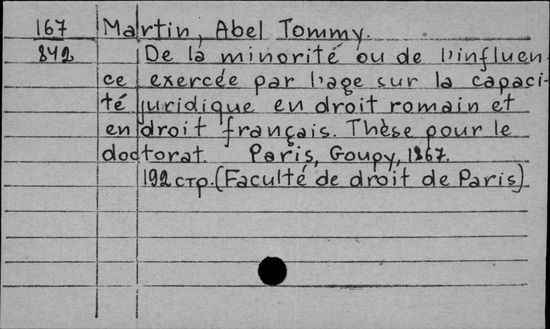 167 Martin, Abel Tommy.
842 De la minorité ou de l'influen-
ce exercée par l'age sur la capaci-
té juridique en droit romain et
en droit français. Thèse pour le
doctorat. Paris, Goupy, 1867.
192 стр. (Faculté de droit de Paris)